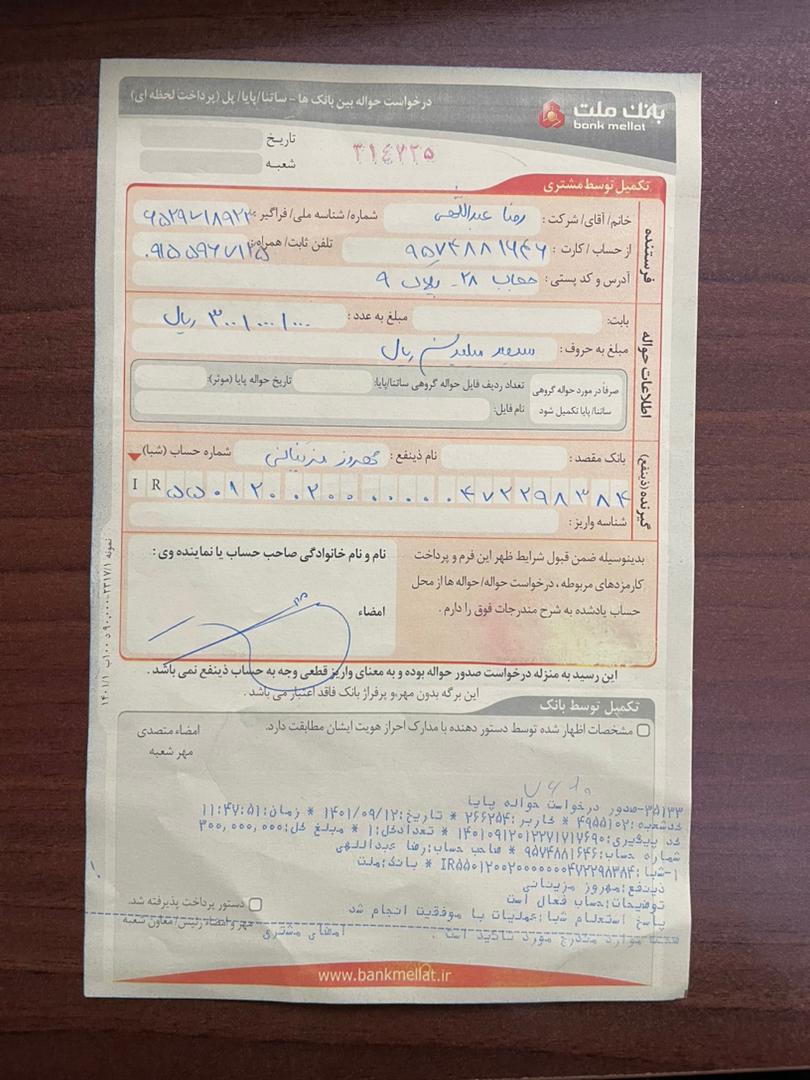 بانک ملت
bank mellat
درخواست حواله بین بانک ها - ساتنا/پایا/پل (پرداخت لحظه ای)
تاریخ
شعبه
۳۱۴۲۲۵
تکمیل توسط مشتری
فرستنده
خانم/آقای/شرکت: رضا عبداللهی شماره/شناسه ملی/فراگیر:
از حساب/کارت: ۹۵۷۴۸۸۱۶۴۶ تلفن ثابت/همراه:
آدرس و کد پستی: حجاب ۲۸ - پلاک ۹
اطلاعات حواله
بابت: مبلغ به عدد: ۳۰۰/۰۰۰/۰۰۰ ریال
مبلغ به حروف: سیصد میلیون ریال
صرفاً در مورد حواله گروهی ساتنا/پایا تکمیل شود
تعداد ردیف فایل حواله گروهی ساتنا/پایا: تاریخ حواله پایا (موثر):
نام فایل:
گیرنده (ذینفع)
بانک مقصد: نام ذینفع: مهروز مزینانی شماره حساب (شبا)
IR ۵۵۰۱۲۰۰۲۰۰۰۰۰۰۰۴۷۲۲۹۸۳۸۴
شناسه واریز:
بدینوسیله ضمن قبول شرایط ظهر این فرم و پرداخت
کارمزدهای مربوطه، درخواست حواله/حواله ها از محل
حساب یادشده به شرح مندرجات فوق را دارم.
نام و نام خانوادگی صاحب حساب یا نماینده وی:
امضاء
این رسید به منزله درخواست صدور حواله بوده و به معنای واریز قطعی وجه به حساب ذینفع نمی باشد.
این برگه بدون مهر و پرفراژ بانک فاقد اعتبار می باشد.
تکمیل توسط بانک
مشخصات اظهار شده توسط دستور دهنده با مدارک احراز هویت ایشان مطابقت دارد.
امضاء متصدی
مهر شعبه
۳۵۱۳۳-صدور درخواست حواله پایا
کدشعبه:۴۹۵۵۱۰۲ * کاربر:۲۶۶۲۵۴ * تاریخ:۱۴۰۱/۰۹/۱۲ * زمان:۱۱:۴۷:۵۱
کد پیگیری:۱۴۰۱۰۹۱۲۰۱۲۲۷۱۷۱۷۶۹۰ * تعدادکل:۱ * مبلغ کل:۳۰۰,۰۰۰,۰۰۰
شماره حساب:۹۵۷۴۸۸۱۶۴۶ * صاحب حساب:رضا عبداللهی
۱-شبا:IR۵۵۰۱۲۰۰۲۰۰۰۰۰۰۰۴۷۲۲۹۸۳۸۴ * بانک:ملت
ذینفع:مهروز مزینانی
توضیحات:حساب فعال است
پاسخ استعلام شبا:عملیات با موفقیت انجام شد
صحت موارد مندرج مورد تائید است. امضای مشتری
دستور پرداخت پذیرفته شد.
مهر و امضاء رئیس/معاون شعبه
www.bankmellat.ir